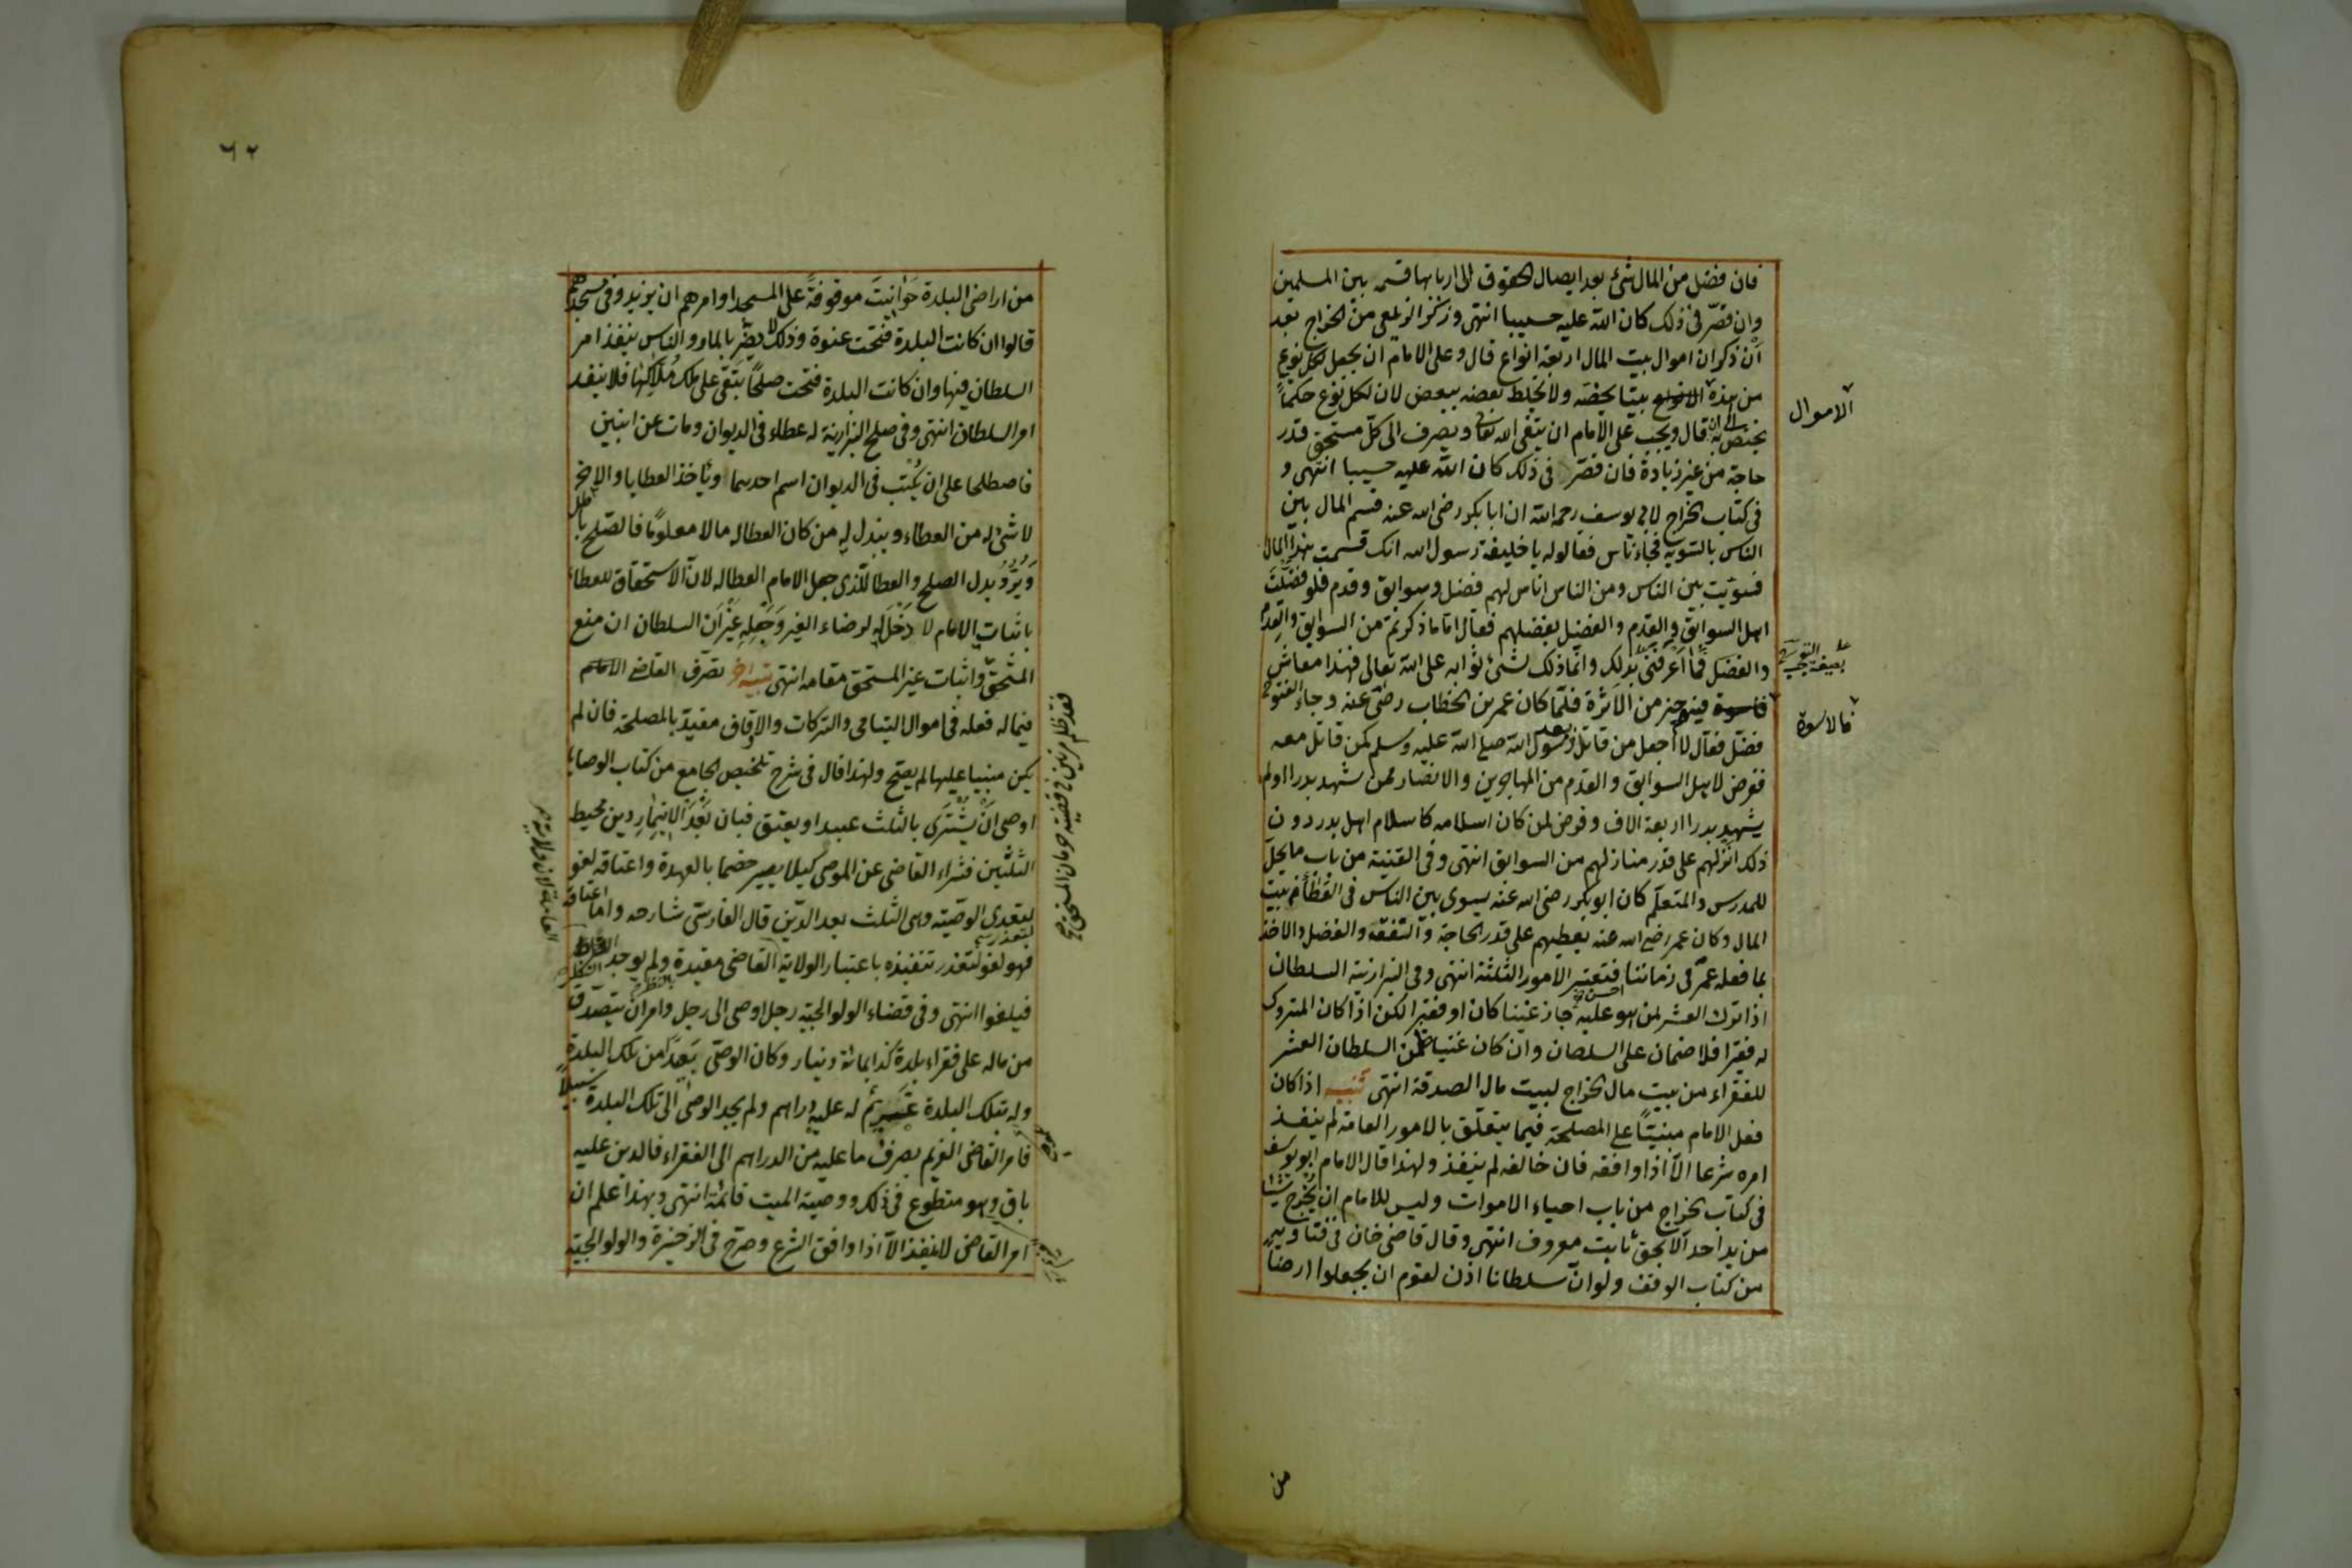 فان فضل من المال شئ بعد ايصال الحقوق الى اربابها قسمه بين المسلمين
وان قصّر فى ذلك كان اللّه عليه حسيبا انتهى وذكر الزيلعى من الخراج بعد
أن ذكر ان اموال بيت المال اربعة انواع قال وعلى الامام ان يجعل لكل نوع
من هذه الانواع بيتا يخصّه ولا يخلط بعضه ببعض لان لكل نوع حكماً
الاموال
يختص به الى ان قال ويجب على الامام ان يتقى الله تعالى ويصرف الى كلّ مستحق قدر
حاجته من غير زيادة فان قصّر فى ذلك كان اللّه عليه حسيبا انتهى و
فى كتاب الخراج لابى يوسف رحمه اللّه ان ابا بكر رضى الله عنه قسم المال بين
الناس بالسّوية فجاء ناس فقالوا له يا خليفة رسول الله انك قسمت هذا المال
فسوّيت بين الناس ومن الناس اناس لهم فضل وسوابق وقدم فلو فضّلت
اهل السوابق والقدم والفضل بفضلهم فقال امّا ما ذكرتم من السوابق والقدم
والفضل فما اعرفنى بذلك وانّما ذلك شئ ثوابه على اللّه تعالى فهذا معاش
بصيغة التعجب
فاسوة فيه خير من الاثرة فلمّا كان عمر بن الخطاب رضى عنه وجاء الفتوح
فالاسوة
فضّل فقال لا اجعل من قاتل رسول اللّه صلى اللّه عليه وسلم كمن قاتل معه
ففرض لاهل السوابق والقدم من المهاجرين والانصار ممن شهد بدرا او لم
يشهد بدرا اربعة الاف وفرض لمن كان اسلامه كاسلام اهل بدر دون
ذلك انزلهم على قدر منازلهم من السوابق انتهى وفى القنية من باب ما يحلّ
للمدرس والمتعلّم كان ابو بكر رضى الله عنه يسوى بين الناس فى العطاء من بيت
المال وكان عمر رضى الله عنه يعطيهم على قدر الحاجة والتفقه والفضل والاخذ
بما فعله عمر فى زماننا احسن فتعتبر الامور الثلثة انتهى وفى البزازية السلطان
اذا ترك العشر لمن هو عليه جاز غنيّا كان او فقيرا لكن اذا كان المتروك
له فقيرا فلا ضمان على السلطان وان كان غنيا ضمن السلطان العشر
للفقراء من بيت مال الخراج لبيت مال الصدقة انتهى تنبيه اذا كان
فعل الامام مبنيّاً على المصلحة فيما يتعلّق بالامور العامة لم ينفذ
امره شرعا الّا اذا وافقه فان خالفه لم ينفذ ولهذا قال الامام ابو يوسف
فى كتاب الخراج من باب احياء الاموات وليس للامام ان يخرج شيئا
من يد احد الّا بحق ثابت معروف انتهى وقال قاضى خان فى فتاويه
من كتاب الوقف ولو انّ سلطانا اذن لقوم ان يجعلوا ارضا
من
٦٢
من اراضى البلدة حوانيت موقوفة على المسجد او امرهم ان يزيدوا فى مسجدهم
قالوا ان كانت البلدة فتحت عنوة وذلك لا يضرّ بالمارّ والناس ينفذ امر
السلطان فيها وان كانت البلدة فتحت صلحًا تبقى على ملك ملّاكها فلا ينفذ
امر السلطان انتهى وفى صلح البزازية له عطاء فى الديوان ومات عن ابنين
فاصطلحا على ان يكتب فى الديوان اسم احدهما ويأخذ العطايا والاخر
لا شئ له من العطاء ويبذل له من كان العطا له مالا معلومًا فالصّلح باطل
ويردّ بدل الصلح والعطا للّذى جعل الامام العطا له لانّ الاستحقاق للعطاء
باثبات الامام لا دخل له لرضاء الغير وجعله غير أن السلطان ان منع
المستحق واثبات غير المستحق مقامه انتهى تنبيه اخر تصرّف القاضى الامام
فقد ظلم مرتين فى قضية حرمان المستحق
فيما له فعله فى اموال اليتامى والتركات والاوقاف مقيدة بالمصلحة فان لم
يكن مبنيا عليها لم يصح ولهذا قال فى شرح تلخيص الجامع من كتاب الوصايا
اوصى ان يشترى بالثلث عبيدا ويعتق فبان بعد الايتمار دين محيط
الثلثين فشراء القاضى عن الموصى كيلا يصير خصما بالعهدة واعتاقه لغو
لتعدى الوصّية وهى الثلث بعد الدّين قال الفارسى شارحه واما اعتاقه
فهو لغو لتعذر تنفيذه باعتبار الولاية القاضى مقيدة ولم يوجد النظر
فيلغوا انتهى وفى قضاء الولوالجية رجل اوصى الى رجل وامر ان يتصدق
من ماله على فقراء بلدة كذا بمائة دينار وكان الوصىّ بعيدا من تلك البلدة
وله بتلك البلدة غريم له عليه دراهم ولم يجد الوصى الى تلك البلدة سبيلاً
فامر القاضى الغريم بصرف ما عليه من الدراهم الى الفقراء فالدين عليه
باق وهو متطوع فى ذلك ووصية الميت قائمة انتهى وبهذا علم ان
امر القاضى لا ينفذ الّا اذا وافق الشرع وصرح فى الذخيرة والولوالجية